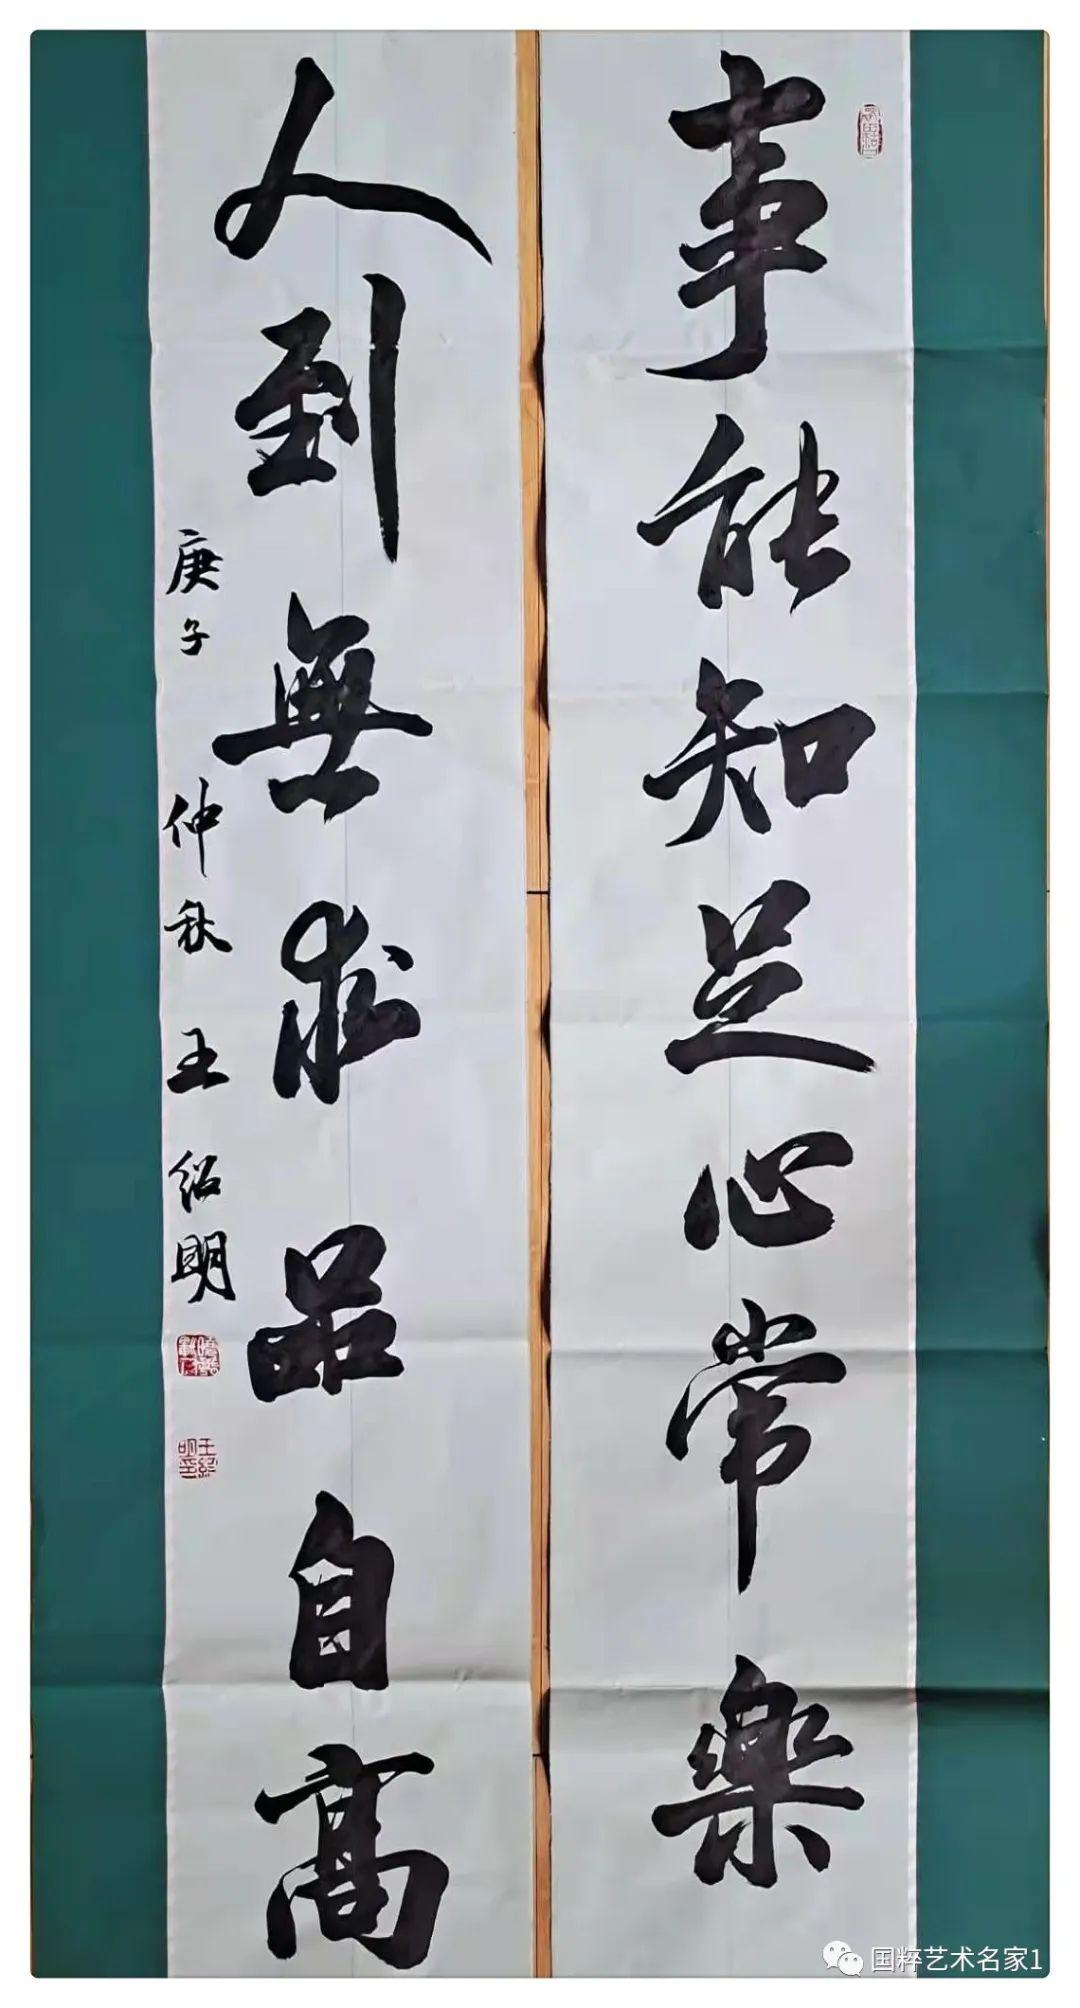 事能知足心常樂
人到無求品自高
庚子仲秋王绍明
国粹艺术名家1